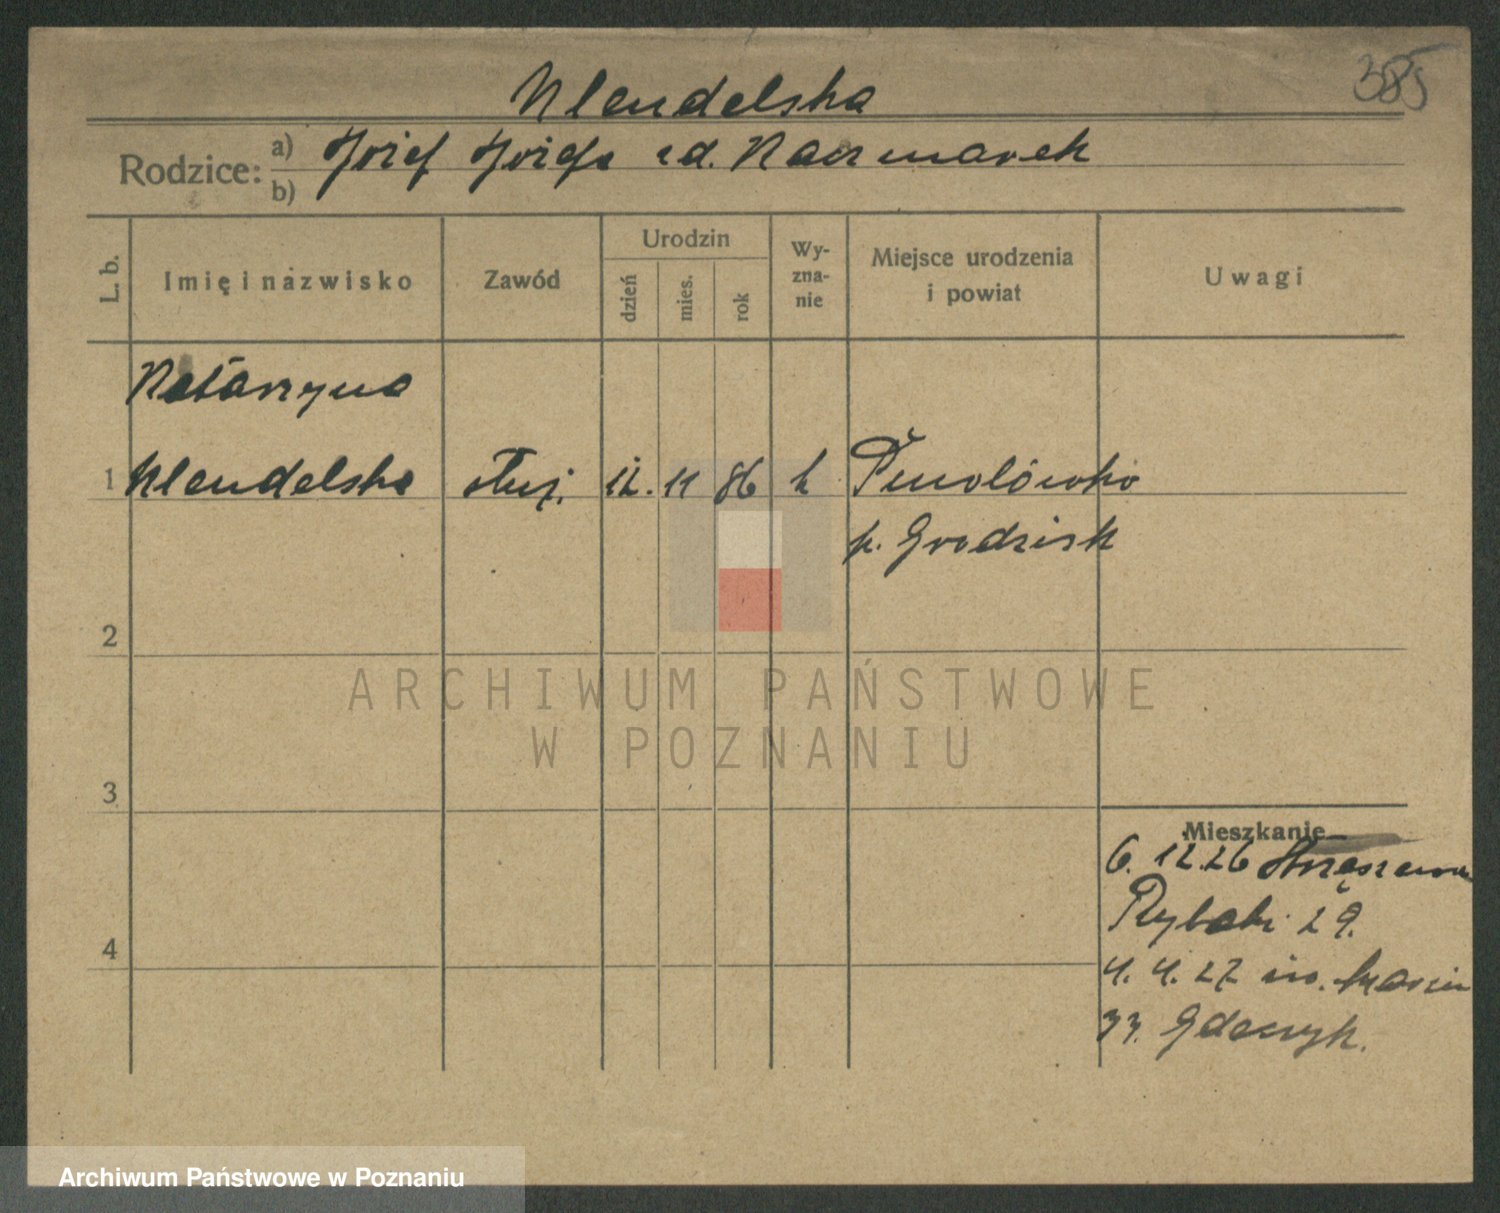 385
Mendelska
Rodzice: a) Józef Józefa z d. Kaczmarek
b)
L. b. Imię i nazwisko Zawód Urodzin dzień mies. rok Wyznanie Miejsce urodzenia i powiat Uwagi
Katarzyna
1 Mendelska służ. 12. 11 86 k
p. Grodzisk
2
ARCHIWUM PAŃSTWOWE
W POZNANIU
3
Mieszkanie
6. 12. 26
Rybaki 29.
4
4. 4. 27 św. Marcin
33.
Archiwum Państwowe w Poznaniu